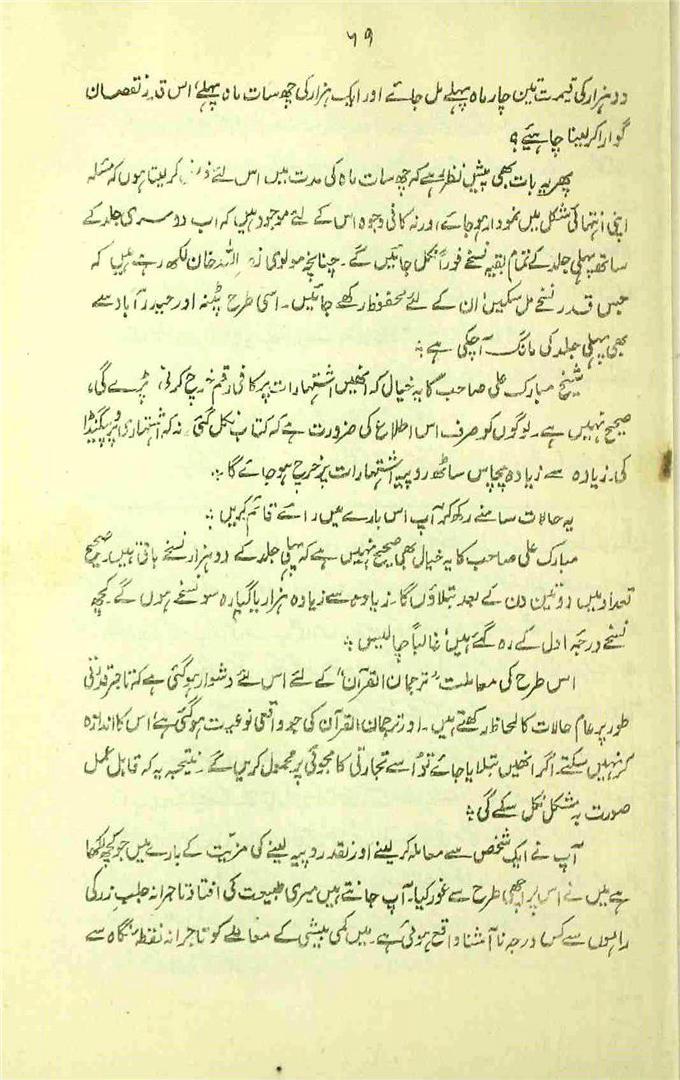 ۶۹
دو ہزار کی قیمت تین چار ماہ پہلے مل جائے اور ایک ہزار کی چھ سات ماہ پہلے، اس قدر نقصان
گوارا کر لینا چاہیئے؟
پھر یہ بات بھی پیش نظر ہے کہ چھ سات ماہ کی مدت میں اس لئے کر لیتا ہوں کہ مسئلہ
اپنی انتہائی شکل میں نمودار ہو جائے، اور نہ کافی وجوہ اس کے لئے موجود ہیں کہ اب دوسری جلد کے
ساتھ پہلی جلد کے تمام بقیہ نسخے فوراً نکل جائیں گے۔ چنانچہ مولوی اللہ خان لکھ رہے ہیں کہ
جس قدر نسخے مل سکیں، ان کے لئے محفوظ رکھے جائیں۔ اسی طرح پٹنہ اور حیدر آباد سے
بھی پہلی جلد کی مانگ آ چکی ہے ؞
شیخ مبارک علی صاحب کا یہ خیال کہ انھیں اشتہارات پر کافی رقم خرچ کرنی پڑے گی،
صحیح نہیں ہے۔ لوگوں کو صرف اس اطلاع کی ضرورت ہے کہ کتاب نکل گئی نہ کہ اشتہاری پروپیگنڈا
کی۔ زیادہ سے زیادہ پچاس ساٹھ روپیہ اشتہارات پر خرچ ہو جائے گا ؞
یہ حالات سامنے رکھ کر آپ اس بارے میں رائے قائم کریں ؞
مبارک علی صاحب کا یہ خیال بھی صحیح نہیں ہے کہ پہلی جلد کے دو ہزار نسخے باقی ہیں۔ صحیح
تعداد میں دو تین دن کے بعد بتلاؤں گا۔ زیادہ سے زیادہ ہزار یا گیارہ سو نسخے ہوں گے۔ کچھ
نسخے درجہ اول کے رہ گئے ہیں، غالباً چالیس ؞
اس طرح کی معاملت "ترجمان القرآن" کے لئے اس لئے دشوار ہو گئی ہے کہ تاجر قدرتی
طور پر عام حالات کا لحاظ رکھتے ہیں۔ اور ترجمان القرآن کی جو واقعی نوعیت ہو گئی ہے، اس کا اندازہ
کر نہیں سکتے۔ اگر انھیں بتلایا جائے تو اسے تجارتی کامجوئی پر محمول کریں گے۔ نتیجہ یہ کہ قابل عمل
صورت بہ مشکل نکل سکے گی ؞
آپ نے ایک شخص سے معاملہ کر لینے اور نقد روپیہ لینے کی مزیّت کے بارے میں جو کچھ لکھا
ہے میں نے اس پر اچھی طرح سے غور کیا۔ آپ جانتے ہیں میری طبیعت کی افتاد تاجرانہ جلب زر کی
راہوں سے کس درجہ نا آشنا واقع ہوئی ہے۔ میں کمی بیشی کے معاملے کو تاجرانہ نقطہ نگاہ سے